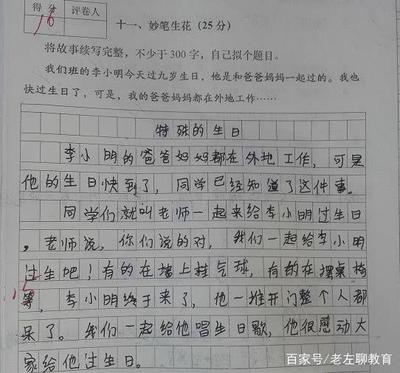 得 分 评卷人
16
十一、妙笔生花（25 分）
将故事续写完整，不少于 300 字，自己拟个题目。
我们班的李小明今天过九岁生日，他是和爸爸妈妈一起过的。我也
快过生日了，可是，我的爸爸妈妈都在外地工作……
特殊的生日
李小明的爸爸妈妈都在外地工作，可是
他的生日快到了，同学已经知道了这件事。
同学们就叫老师一起来给李小明过生日
，老师说，你们说的对，我们一起给李小明
过生吧！有的在墙上挂气球，有的在摆桌椅
等，李小明终于来了，他一推开门整个人都
呆了。我们一起给他唱生日歌，他很感动大
家给他过生日。
百家号/老左聊教育